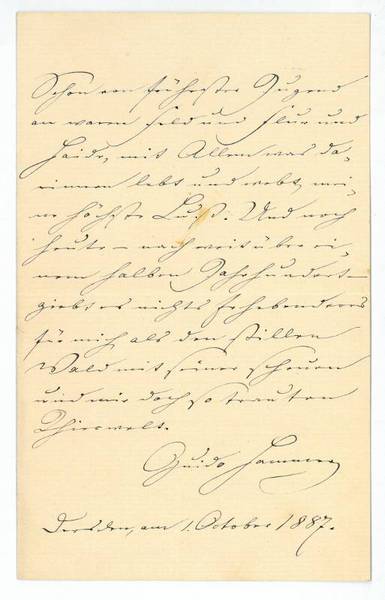 Schon von frühester Jugend
an waren Feld und Flur und
Haide, mit Allem was da-
rinnen lebt und webt, mei-
ne höchste Lust. Und noch
heute – nach weit über ei-
nem halben Jahrhundert –
giebt es nichts Erhebenderes
für mich als den stillen
Wald mit seiner scheuen
und mir doch so trauten
Thierwelt.
Guido Hammer
Dresden, am 1. October 1887.